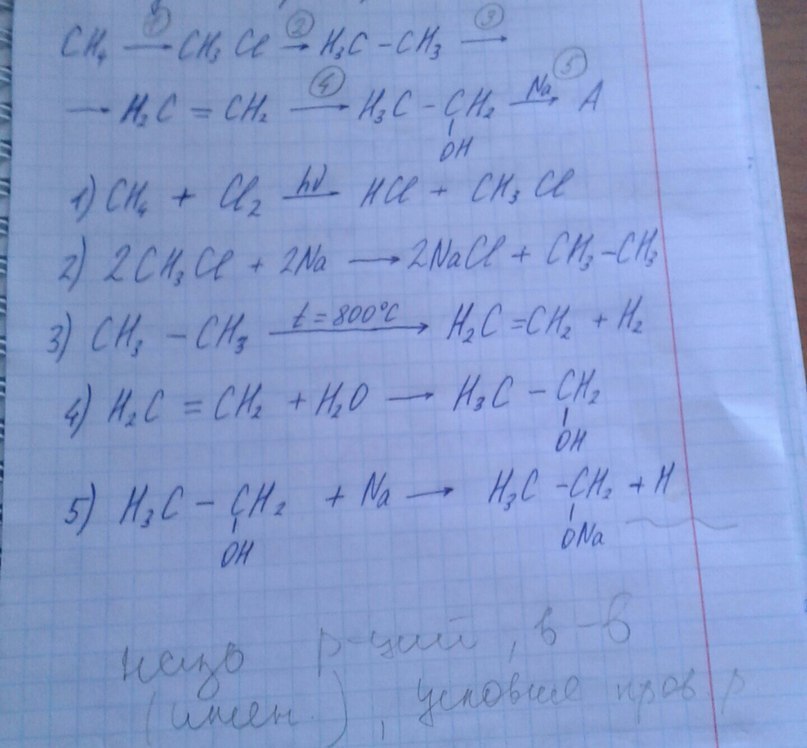 CH₄ →① CH₃Cl →② H₃C – CH₃ →③
→ H₂C = CH₂ →④ H₃C – CH₂ –Na→⑤ A
OH
1) CH₄ + Cl₂ –hν– HCl + CH₃Cl
2) 2CH₃Cl + 2Na → 2NaCl + CH₃–CH₃
3) CH₃ – CH₃ –t = 800°C→ H₂C = CH₂ + H₂
4) H₂C = CH₂ + H₂O → H₃C – CH₂
OH
5) H₃C – CH₂ + Na → H₃C – CH₂ + H
OH ONa
назв р-ций, в-в
(имен.), условие пров р